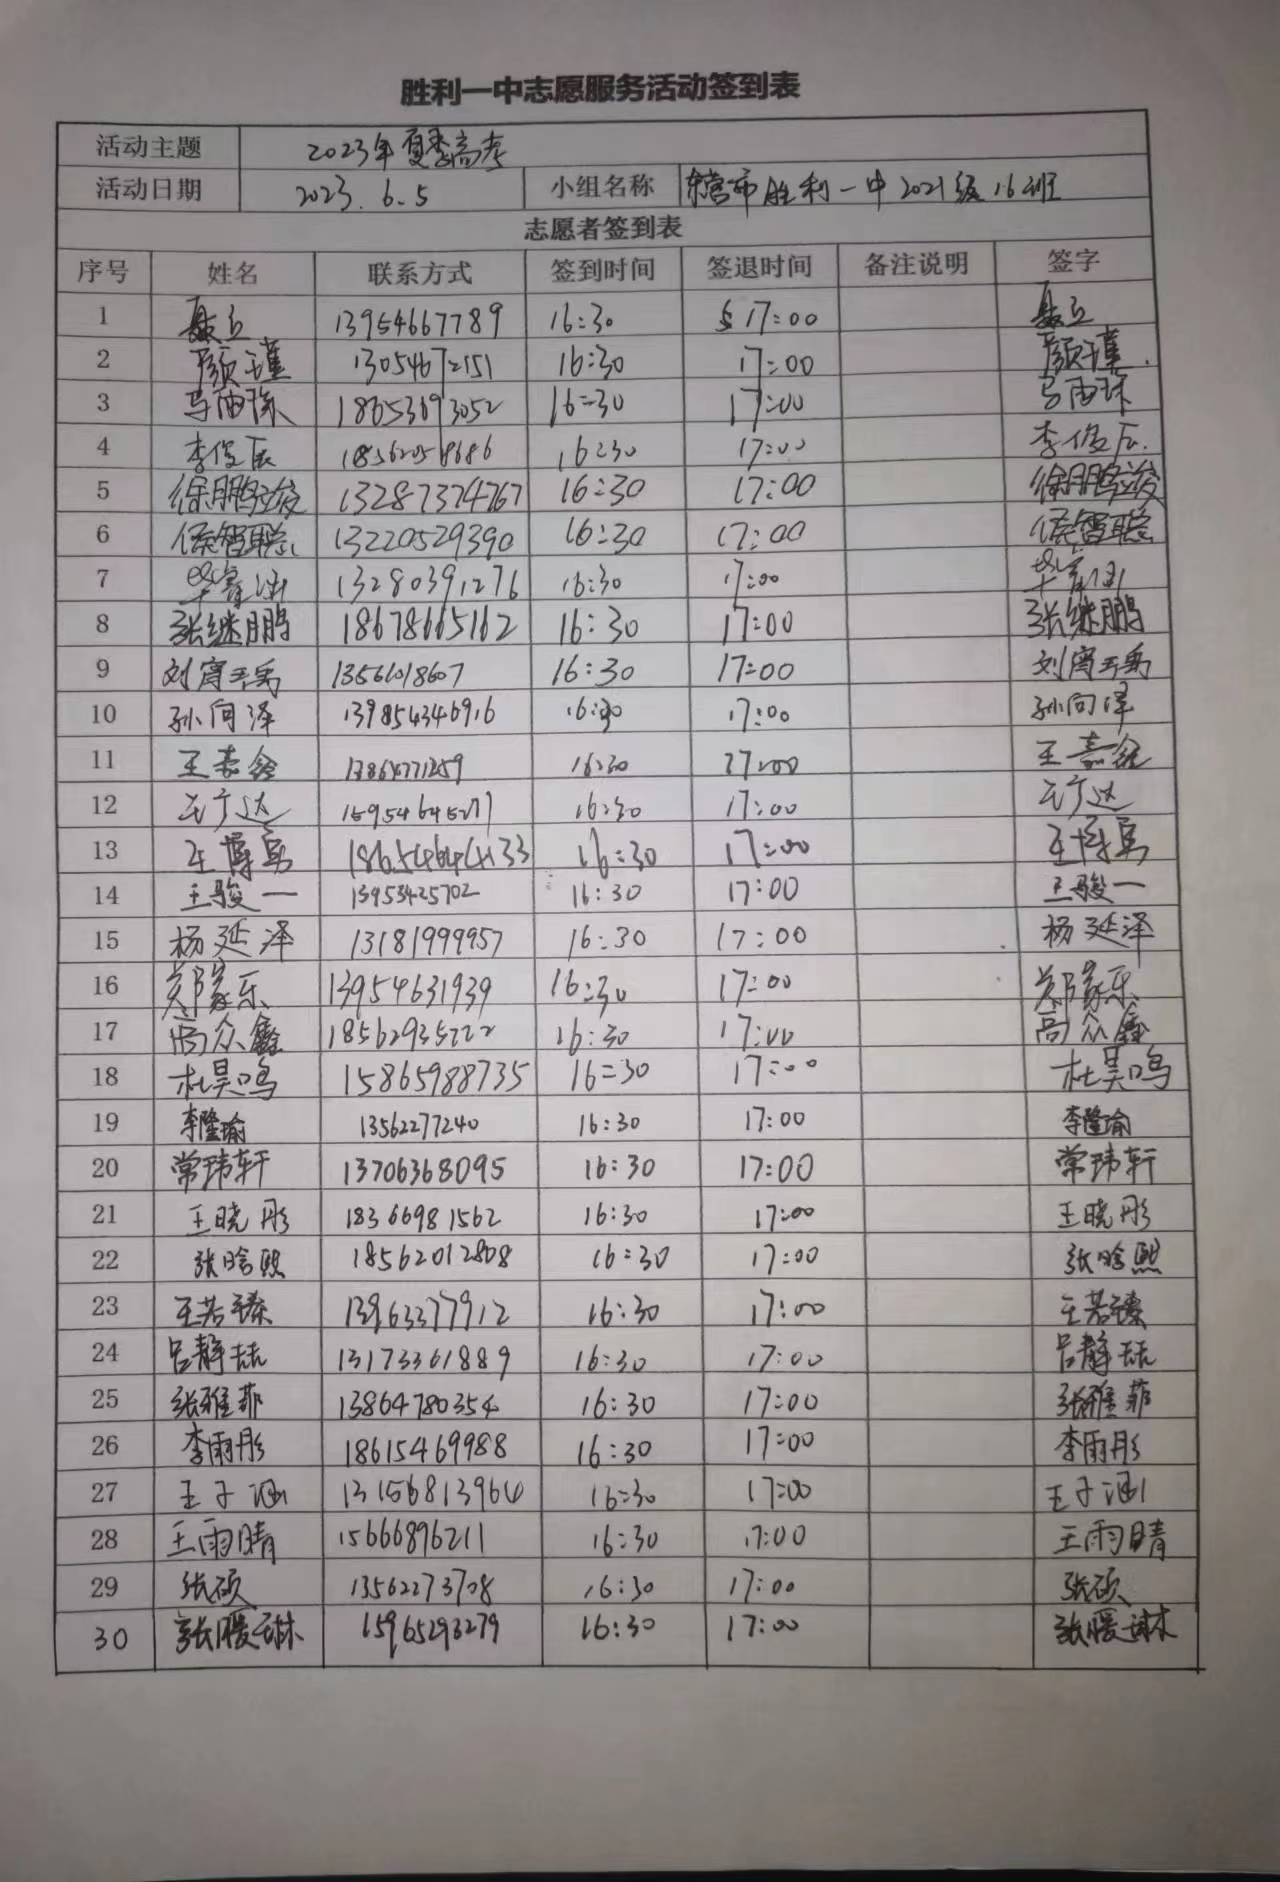 胜利一中志愿服务活动签到表
活动主题 2023年夏季高考
活动日期 2023.6.5 小组名称 东营市胜利一中2021级16班
志愿者签到表
序号 姓名 联系方式 签到时间 签退时间 备注说明 签字
1 聂立 13954667789 16:30 17:00 聂立
2 颜瑾 13054672151 16:30 17:00 颜瑾
3 18653693052 16:30 17:00
4 李俊辰 16:30 17:00 李俊辰
5 徐鹏竣 13287374767 16:30 17:00 徐鹏竣
6 侯智聪 13220529390 16:30 17:00 侯智聪
7 毕睿涵 13280391276 16:30 17:00 毕睿涵
8 张继鹏 18678665162 16:30 17:00 张继鹏
9 刘宵玉禹 16:30 17:00 刘宵玉禹
10 孙向泽 139854346916 16:30 17:00 孙向泽
11 王嘉鑫 16:30 17:00 王嘉鑫
12 王广达 15954645277 16:30 17:00 王广达
13 王博勇 18654644133 16:30 17:00 王博勇
14 王骏一 13953425702 16:30 17:00 王骏一
15 杨延泽 13181999957 16:30 17:00 杨延泽
16 郑家乐 13954631939 16:30 17:00 郑家乐
17 高众鑫 18562935222 16:30 17:00 高众鑫
18 杜昊鸣 15865988735 16:30 17:00 杜昊鸣
19 李隆瑜 13562277240 16:30 17:00 李隆瑜
20 常玮轩 13706368095 16:30 17:00 常玮轩
21 王晓彤 18366981562 16:30 17:00 王晓彤
22 张晗熙 18562012808 16:30 17:00 张晗熙
23 王若臻 13963377912 16:30 17:00 王若臻
24 吕静喆 13173361889 16:30 17:00 吕静喆
25 张雅菲 13864780354 16:30 17:00 张雅菲
26 李雨彤 18615469988 16:30 17:00 李雨彤
27 王子涵 13156813964 16:30 17:00 王子涵
28 王雨晴 15666896211 16:30 17:00 王雨晴
29 张硕 13562273708 16:30 17:00 张硕
30 张暖琳 15965293279 16:30 17:00 张暖琳